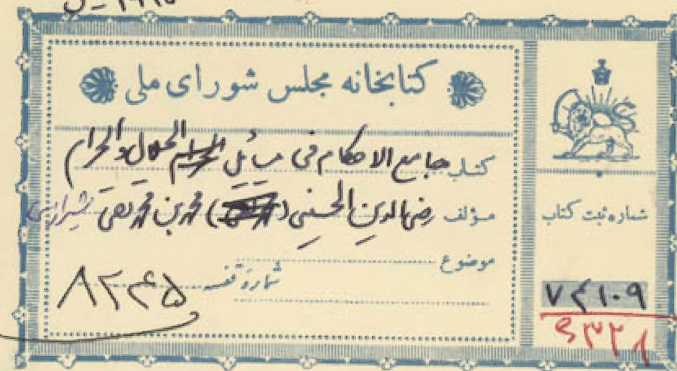 کتابخانه مجلس شورای ملی
کتاب جامع الاحکام فی مسائل الحلال و الحرام
مؤلف رضی الدین الحسینی محمد بن محمد تقی شیرازی
موضوع
شماره قفسه ۸۲۴۵
شماره ثبت کتاب
۷۴۱۰۹